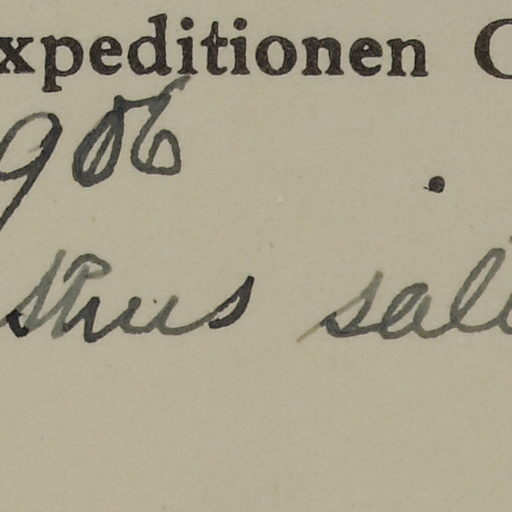 xpeditionen C
906
skus sal